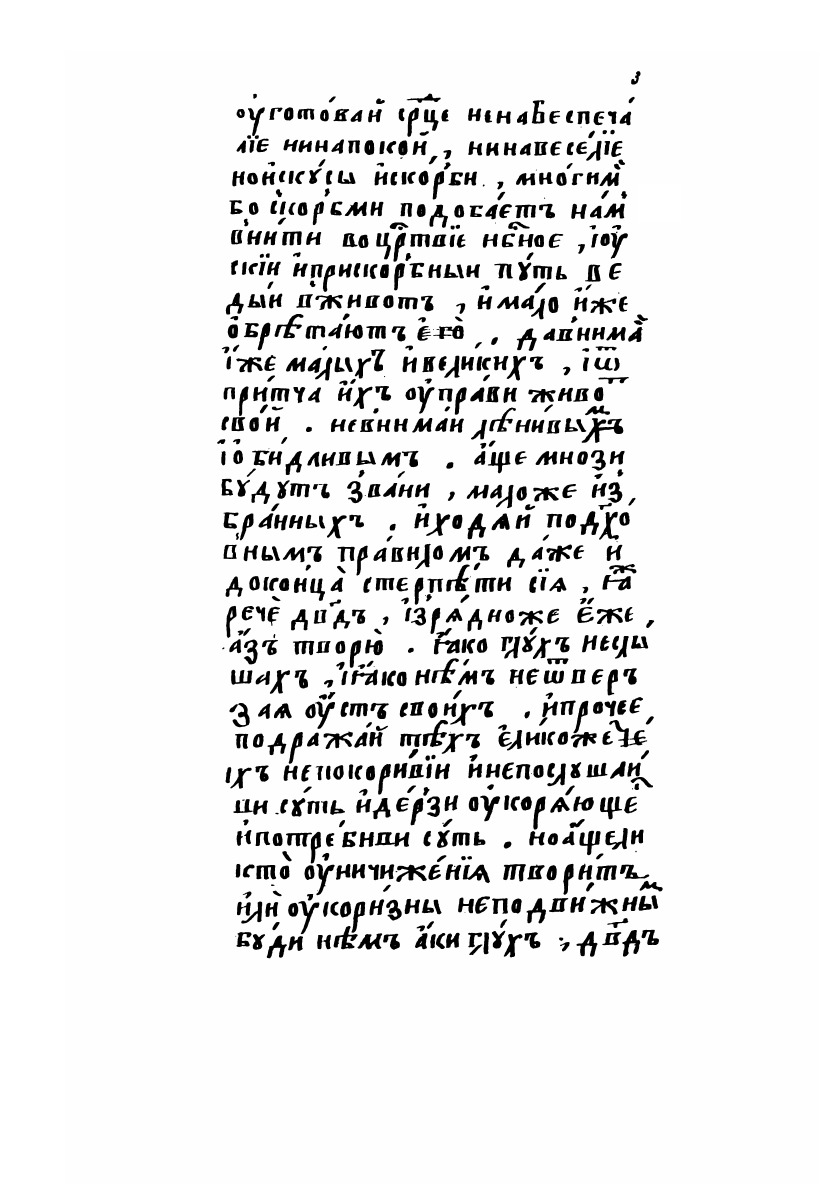 з
оуготова́й ср҃це ненабеспеча́
лїе нинапокой , нинавесе́лїе
нои҆ску́сы и҆ско́рби , мно́гим̾
бо ско́рбми подоба́етъ на́м̾
вни́ти воцр҃твїе нб҃ное , і҆оу҆
скїи и҆приско́рбныи пу́ть ве
ды́и в̾живо́тъ , и҆ма́ло и҆́же
ѡ҆брѣта́ютъ е҆го̀ . давнима́
і҆́же ма́лыхъ и҆вели́кихъ , і҆ѿ
при́тча и҆́хъ оу҆пра́ви живо
сво́й . невнима́и лѣни́вымъ
і҆оби́дливымъ . а҆́ще мно́зи
бу́дутъ зва́ни , ма́ложе и҆з̾
бра́нныхъ . и҆ходѧ́й подхо
внымъ пра́виломъ да́же и҆
доконца̀ стерпѣ́ти сїѧ̀ , ꙗ҆́
речѐ дв҃дъ , і҆зрѧ́дноже є҆́же ,
а҆́зъ творю̀ . ꙗ҆́ко глу́хъ неслы
шахъ , і҆ꙗ҆́ко нѣ́мъ неѿвер
заѧ оу҆́стъ свои́хъ . и҆прочее ,
подража́й тѣ́хъ є҆ли́коже
і҆хъ непокори́вїи и҆непослушли́
ви су́ть и҆де́рзи оу҆корѧ́юще
и҆потре́бниви су́ть . ноа҆́щели
кто̀ оу҆ничиже́нїѧ твори́тъ
и҆лѝ оу҆кори́зны неподви́жны̾
бу́ди нѣ́мъ а҆́ки глу́хъ , дв҃дъ